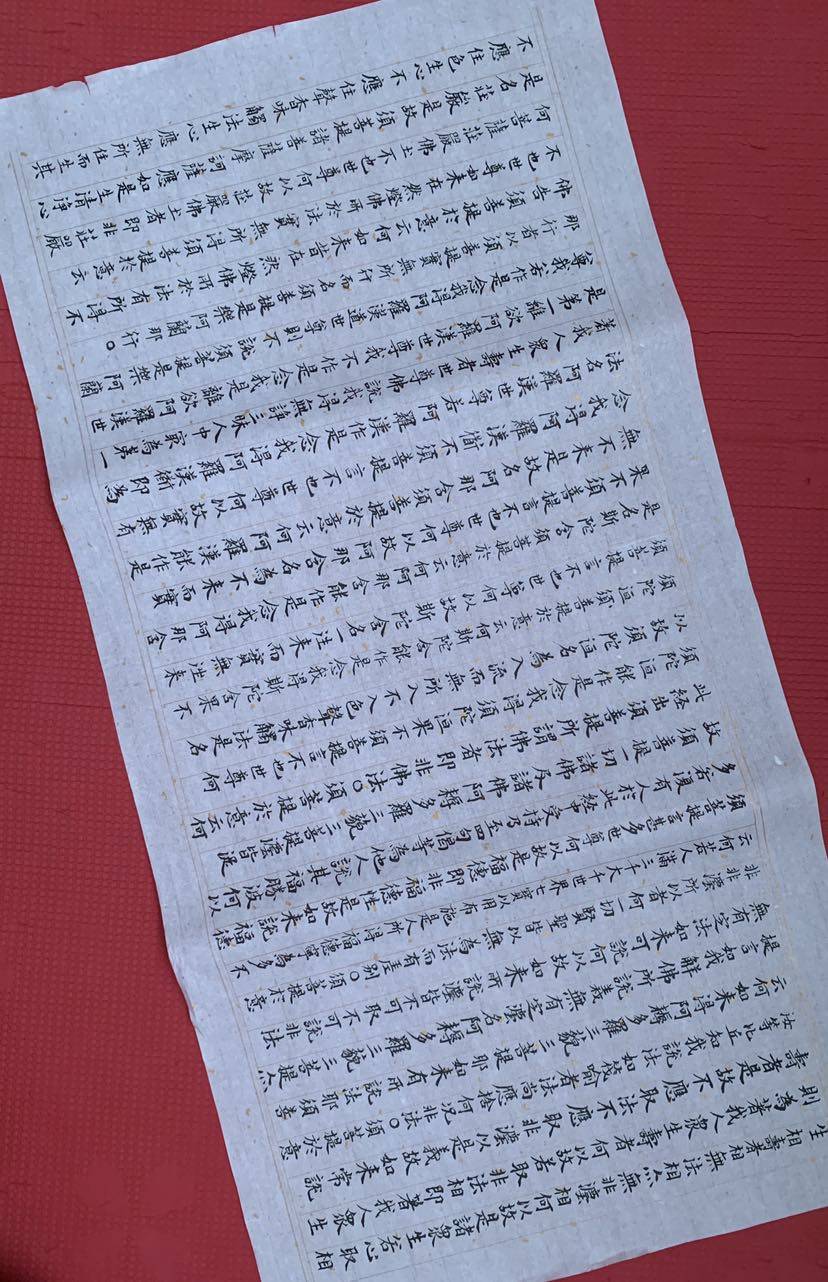 生相壽者相無法相亦無非法相何以故是諸眾生若心取相
則為著我人眾生壽者何以故若取非法相即著我人眾生
壽者是故不應取法不應取非法以是義故如來常說
汝等比丘知我說法如筏喻者法尚應捨何況非法○須菩提於意
云何如來得阿耨多羅三藐三菩提耶如來有所說法耶須菩
提言如我解佛所說義無有定法名阿耨多羅三藐三菩提亦
無有定法如來可說何以故如來所說法皆不可取不可說非法
非法所以者何一切賢聖皆以無為法而有差別○須菩提於意
云何若人滿三千大千世界七寶以用布施是人所得福德寧為多不
須菩提言甚多世尊何以故是福德即非福德性是故如來說福德
多若復有人於此經中受持乃至四句偈等為他人說其福勝彼何以
故須菩提一切諸佛及諸佛阿耨多羅三藐三菩提法皆從
此經出須菩提所謂佛法者即非佛法○須菩提於意云何
須陀洹能作是念我得須陀洹果不須菩提言不也世尊何
以故須陀洹名為入流而無所入不入色聲香味觸法是名
須陀洹須菩提於意云何斯陀含能作是念我得斯陀含果不
須菩提言不也世尊何以故斯陀含名一往來而實無往來
是名斯陀含須菩提於意云何阿那含能作是念我得阿那含
果不須菩提言不也世尊何以故阿那含名為不來而實
無不來是故名阿那含須菩提於意云何阿羅漢能作是
念我得阿羅漢道不須菩提言不也世尊何以故實無有
法名阿羅漢世尊若阿羅漢作是念我得阿羅漢道即為
著我人眾生壽者世尊佛說我得無諍三昧人中最為第一
是第一離欲阿羅漢世尊我不作是念我是離欲阿羅漢世
尊我若作是念我得阿羅漢道世尊則不說須菩提是樂阿蘭
那行者以須菩提實無所行而名須菩提是樂阿蘭那行○
佛告須菩提於意云何如來昔在然燈佛所於法有所得不
不也世尊如來在然燈佛所於法實無所得須菩提於意云
何菩薩莊嚴佛土不不也世尊何以故莊嚴佛土者即非莊嚴
是名莊嚴是故須菩提諸菩薩摩訶薩應如是生清淨心
不應住色生心不應住聲香味觸法生心應無所住而生其